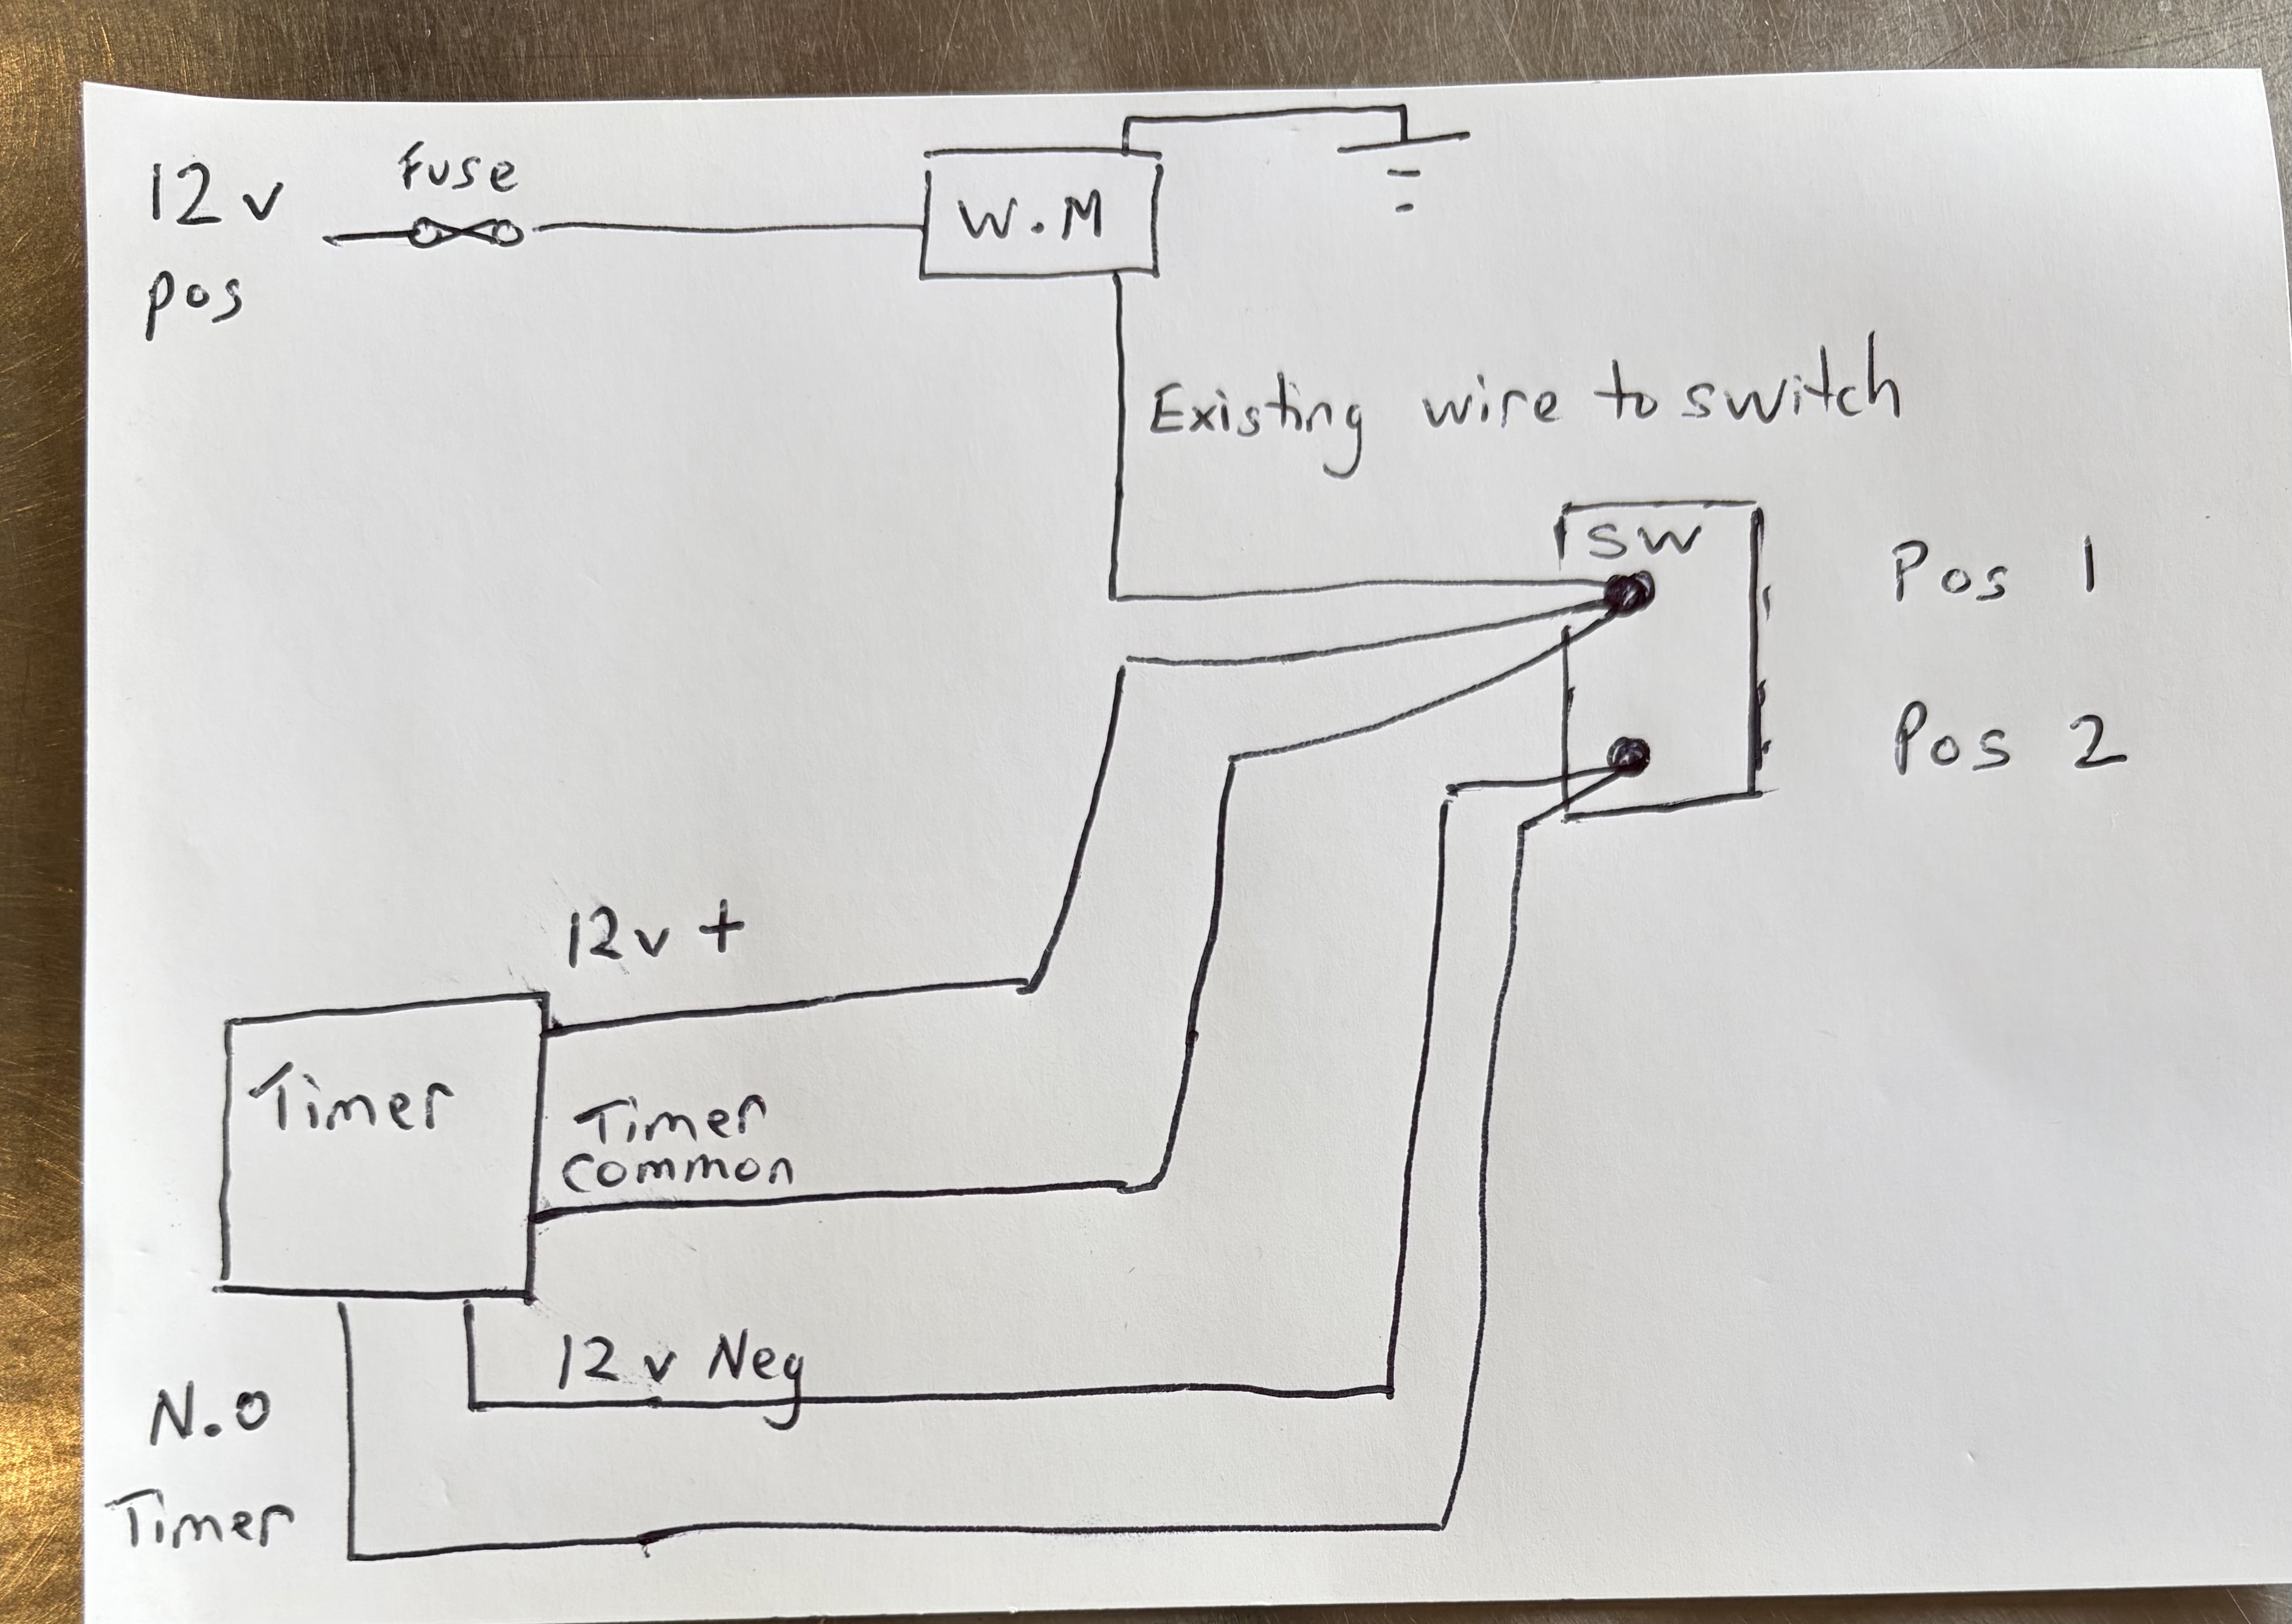 12v
pos
Fuse
W.M
Existing wire to switch
SW
Pos 1
Pos 2
12v +
Timer
Timer
Common
12 v Neg
N.O
Timer